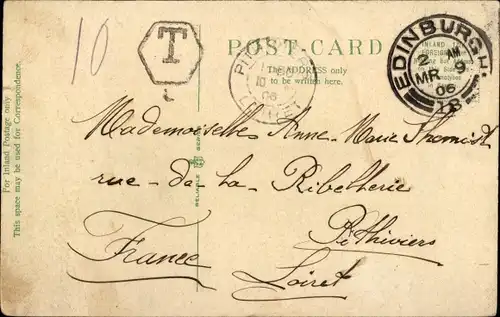 10
T
POST CARD
The ADDRESS only
to be written here.
EDINBURGH.
2 AM
MR 9
06
18
INLAND
FOREIGN
10
06
LOIRET
For Inland Postage only
This space may be used for Correspondence.
RELIABLE
SERIES
Mademoiselle Anne-Marie
rue-de-la Ribellerie
Pithiviers
France Loiret